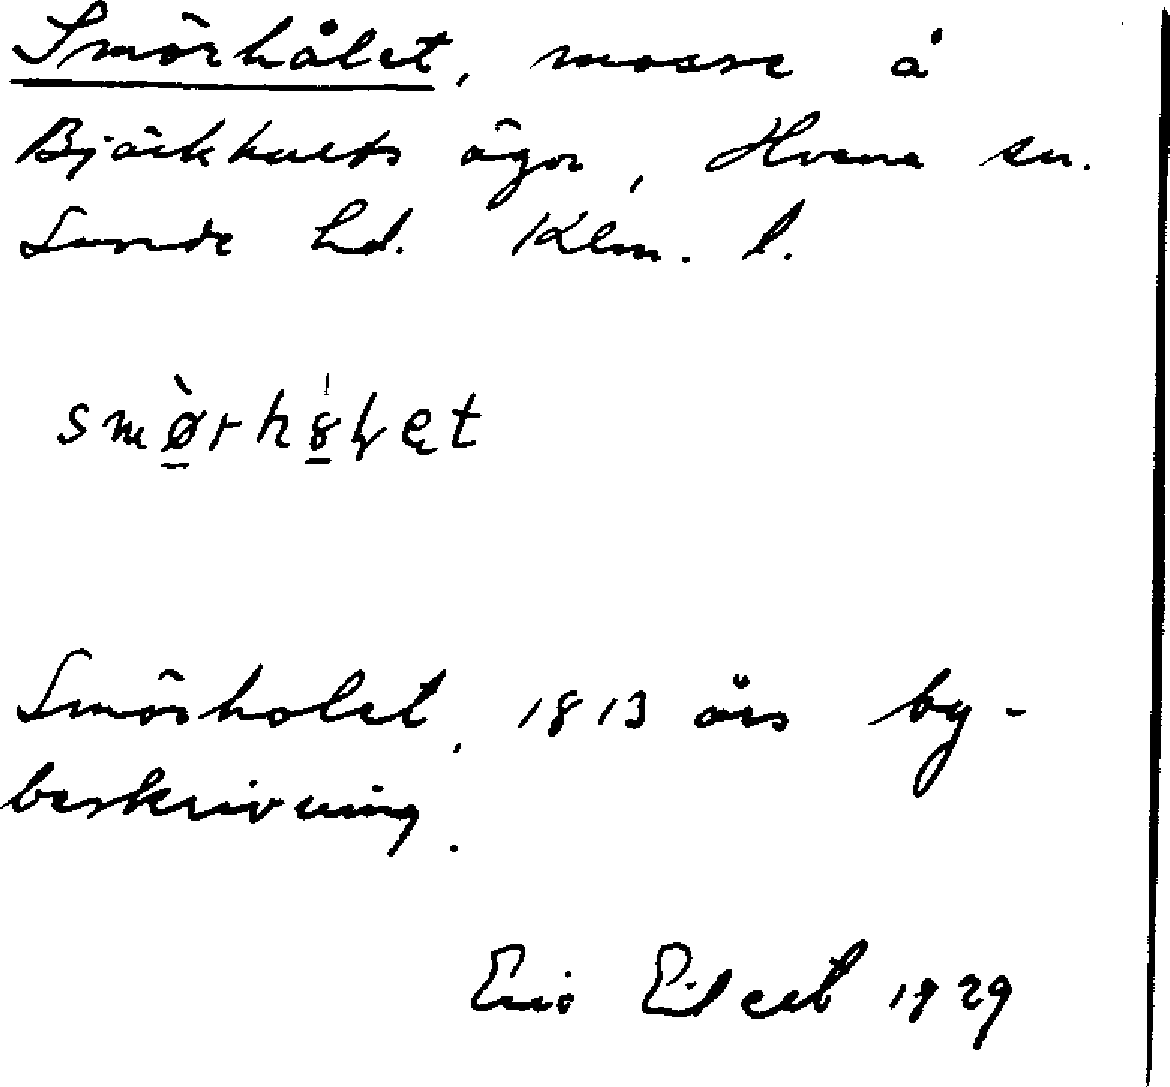 Smörhålet, mosse å
Björkhults ägor, Hvena sn.
Sunde hd. Klm. l.
smørhålet
Smörholet, 1813 års by-
beskrivning.
Eric Elcert 1929